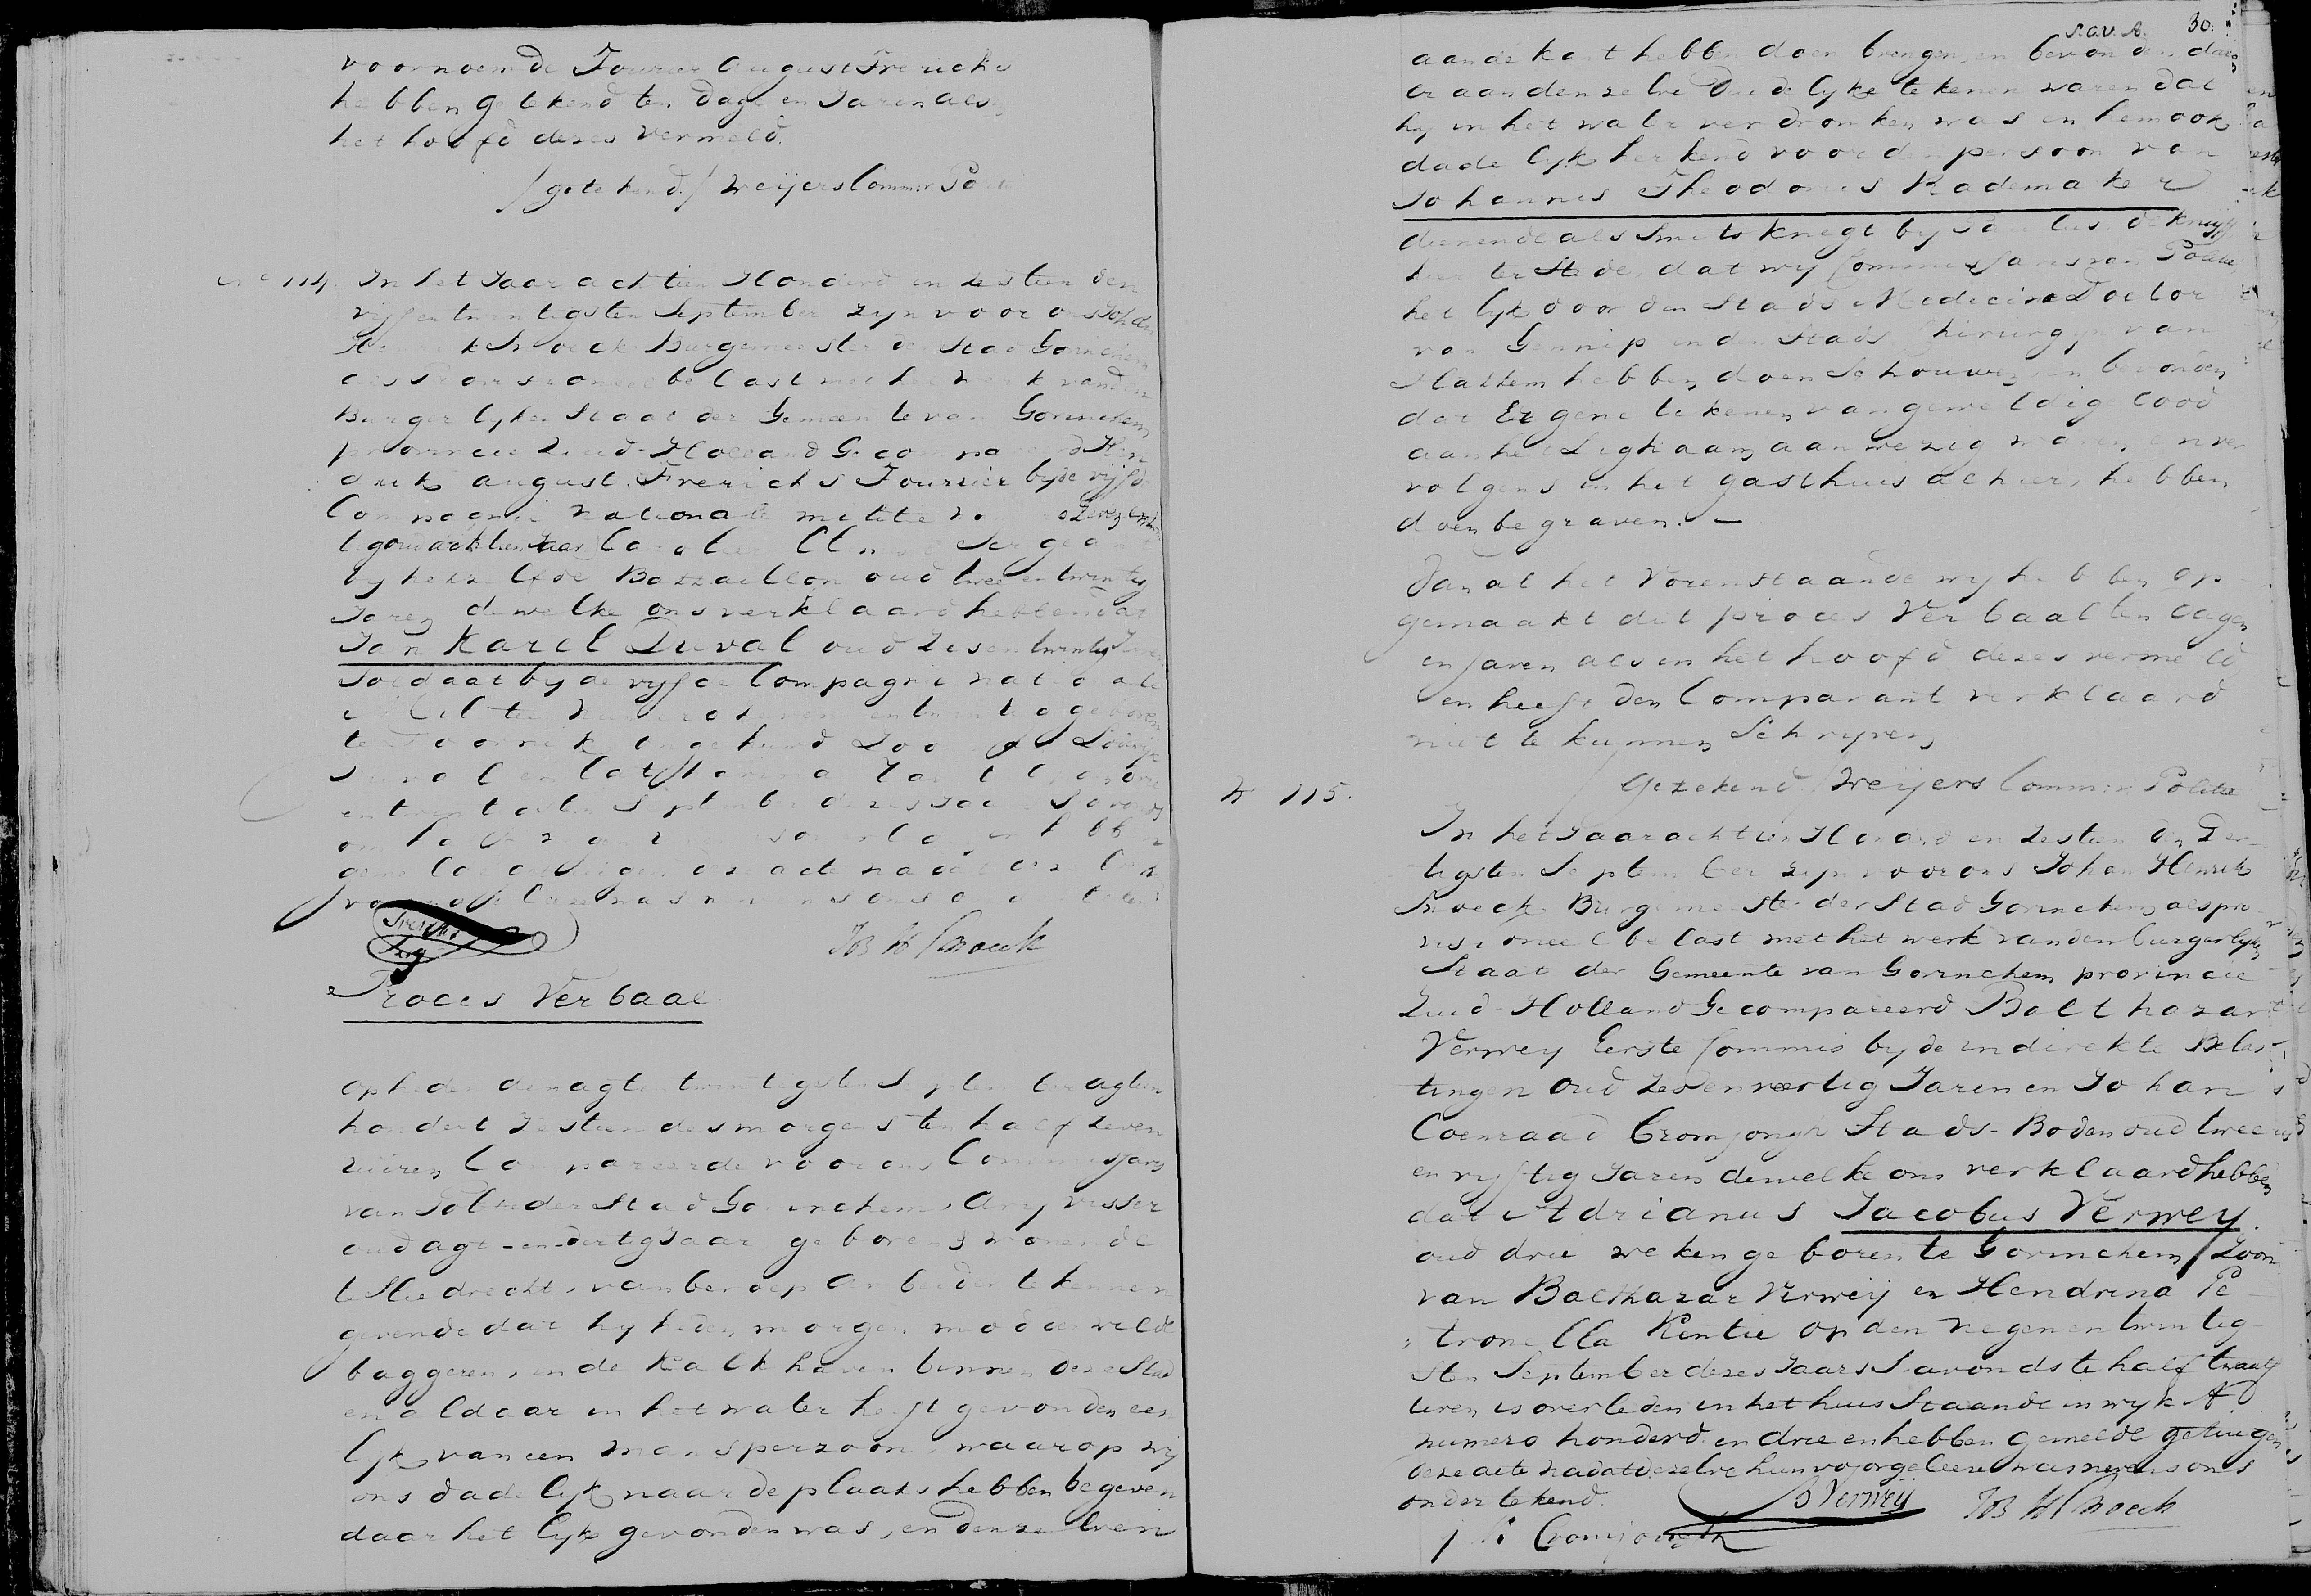 voornoemde Fourier August Frerichs
hebben getekend ten dage en Jaren als
het hoofd dezes vermeld.
/getekend/ Weijers Commis. Politie
No 114. In het Jaar achttien Honderd en zestien den
vijfentwintigsten September zyn voor ons Johan
Henrik Snoeck Burgemeester der Stad Gorinchem
als provisioneel belast met het werk van den
Burgerlyken Staat der Gemeente van Gorinchem
provincie Zuid-Holland Gecompareerd Hen
drik August Frerichs Fourier by de vijfde
Compagnie Nationale Militie No
oud achttien Jaar Sergeant
by hetzelfde Battaillon oud twee en twintig
Jaren dewelke ons verklaard hebben dat
Jan Karel Duval oud zes en twintig Jaren
Soldaat by de vyfde Compagnie nationale
Militie Numero zeven en twintig geboren
te Doornik ongehuwd Zoon
Duval en Catharina
entwintigsten September dezes Jaars S'avonds
overleden en hebben
gemelde getuigen deze acte nadat dezelve hun
voorgeleezen was nevens ons ondertekend
Frerichs
JB H Snoeck
Proces Verbaal
Op heden den agtentwintigsten September agtien
hondert zestien des morgens ten half zeven
uuren Compareerde voor ons Commissaris
van Politie der Stad Gorinchem, Ary Visser
oud agt-en-dertig Jaar geboren & wonende
te Sliedrecht, van beroep Arbeider te kennen
gevende dat hy heden morgen modder wilde
baggeren, in de Kalkhaven binnen deze Stad
en aldaar in het water heeft gevonden een
lyk van een manspersoon, waarop wij
ons dadelyk naar de plaats hebben begeven
daar het lyk gevonden was, en denzelven
30.
aan de kant hebben doen brengen, en bevonden dat
er aan denzelve duidelyke tekenen waren dat
hy in het water verdronken was en hem ook
dadelyk herkend voor den persoon van
Johannes Theodorus Rademaker
dienende als Smits Knegt by Paulus de Kruijff
hier ter Stede, dat wij Commissaris van Politie
het lyk door den Stads Medicine Doctor
van Gennip en den Stads Chirurgijn van
Hattem hebben doen Schouwen en bevonden
dat Er gene tekenen van geweldige dood
aan het Lighaam aanwezig waren, en ver
volgens in het gasthuis alhier, hebben
doen begraven. —
Van al het Vorenstaande wy hebben op
gemaakt dit proces Verbaal ten dagen
en Jaren als in het hoofd dezes vermeld
en heeft den Comparant verklaard
niet te kunnen Schryven
/Getekend/ Weijers Commis. Politie
N 115.
In het Jaar achttien Honderd en zestien den Der-
tigsten September zyn voor ons Johan Henrik
Snoeck Burgemeester der Stad Gorinchem als pro
visioneel belast met het werk van den burgerlyken
Staat der Gemeente van Gorinchem provincie
Zuid-Holland Gecompareerd Balthazar
Verwey Eerste Commis by de indirekte Belas-
tingen Oud zesenveertig Jaren en Johan
Coenraad Cromjongh Stads-Boden oud twee
en vyftig Jaren dewelke ons verklaard hebben
dat Adrianus Jacobus Verwey.
oud drie weken geboren te Gorinchem / Zoon
van Balthazar Verweij en Hendrina Pe-
tronella Kentie op den Negen en twintig-
sten September dezes Jaars S'avonds te half twaalf
uren is overleden in het huis Staande in wyk A
numero honderd en drie en hebben gemelde getuigen
deze acte nadat dezelve hun voorgeleezen was nevens ons
ondertekend.
B Verweij
JB H Snoeck
J. K. Cromjongh